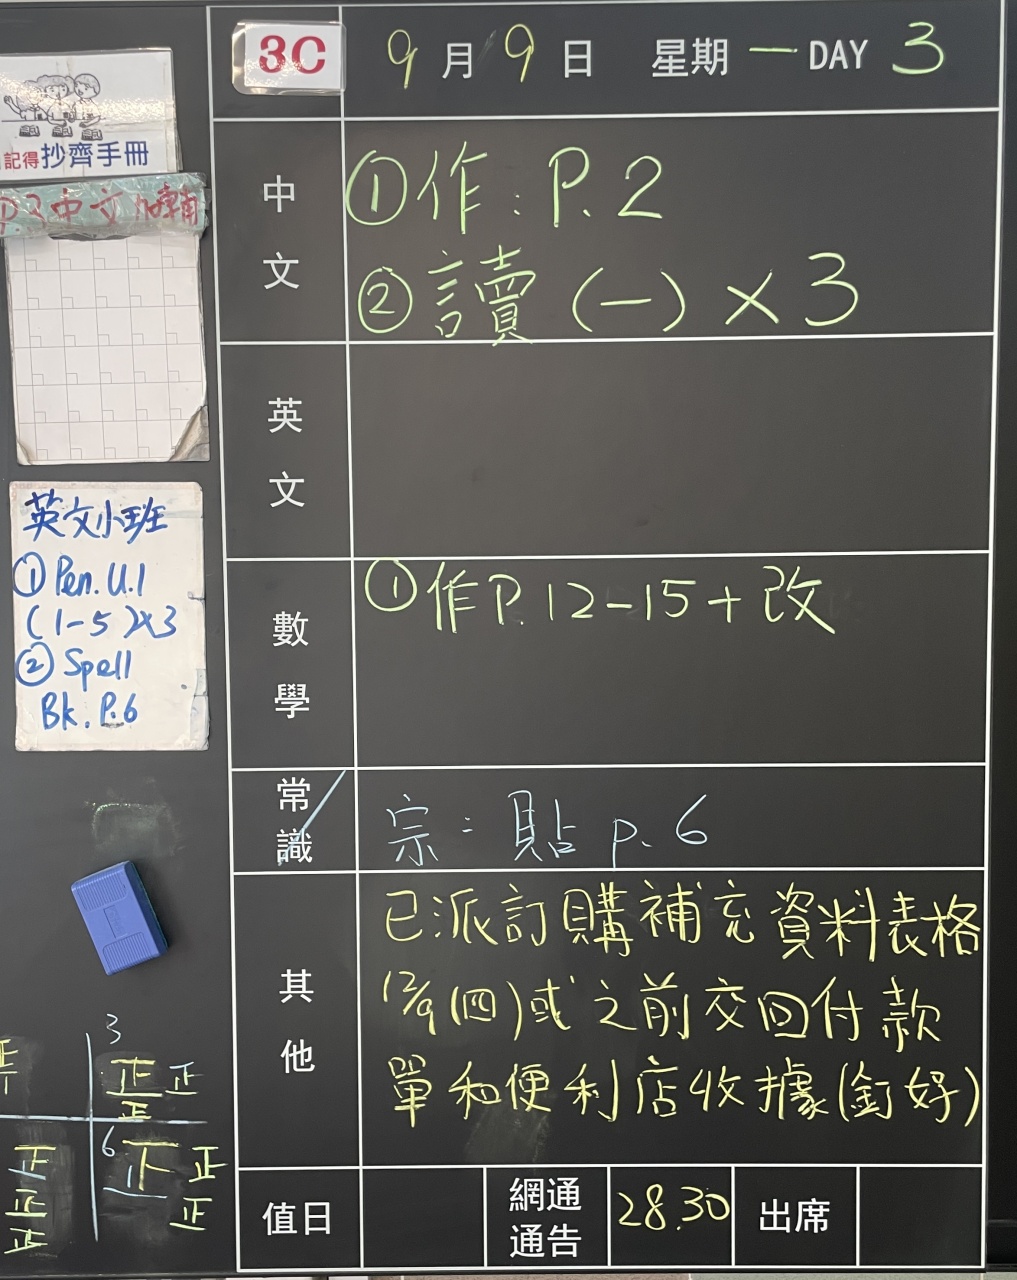 3C 9月9日 星期一 DAY 3
記得抄齊手冊
P.3中文加輔
中文
①作:P.2
②讀(一)×3
英文
英文小班
① Pen. U.1
(1-5)×3
② Spell
Bk. P.6
數學
①作P.12-15+改
常識
宗:貼 p.6
其他
已派訂購補充資料表格
12/9(四)或之前交回付款
單和便利店收據(釘好)
3
正正
正
6
正
正
正
正
正
正
值日 網通通告 28.30 出席